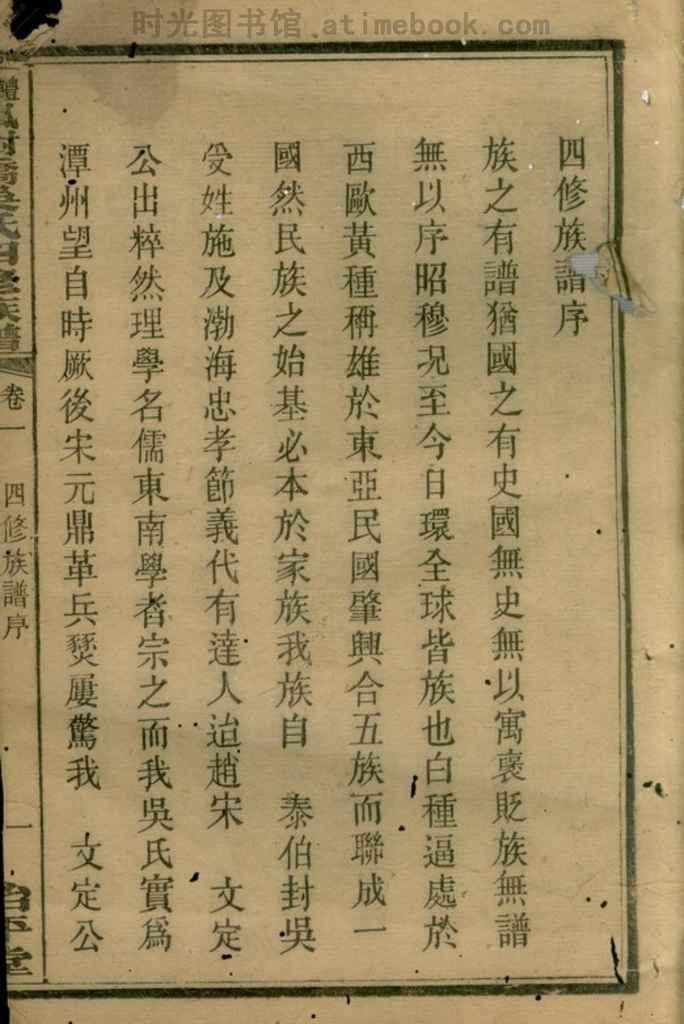 时光图书馆 .atimebook.com
四修族譜序
族之有譜猶國之有史國無史無以寓襃貶族無譜
無以序昭穆况至今日環全球皆族也白種逼處於
西歐黃種稱雄於東亞民國肇興合五族而聯成一
國然民族之始基必本於家族我族自 泰伯封吳
受姓施及渤海忠孝節義代有達人迨趙宋 文定
公出粹然理學名儒東南學者宗之而我吳氏實爲
潭州望自時厥後宋元鼎革兵燹屢驚我 文定公
吳氏四修族譜
卷一
四修族譜序
一